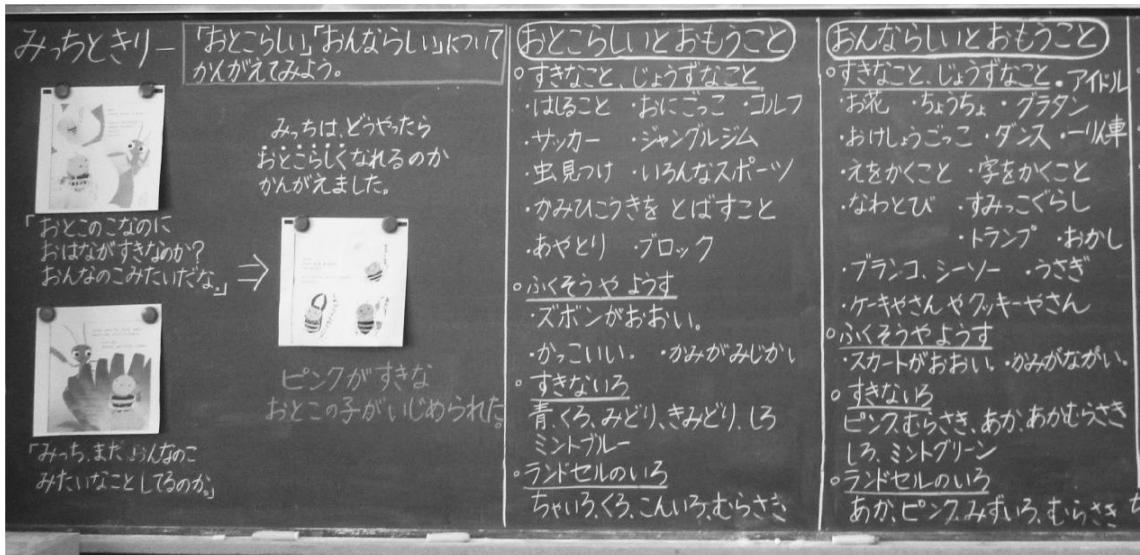 みっちときりー
「おとこらしい」「おんならしい」について
かんがえてみよう。
「おとこのこなのに
おはながすきなのか?
おんなのこみたいだな。」
「みっち、また、おんなのこ
みたいなことしてるのか。」
みっちは、どうやったら
おとこらしくなれるのか
かんがえました。
⇒
ピンクがすきな
おとこの子がいじめられた。
おとこらしいとおもうこと
○すきなこと、じょうずなこと
・はしること ・おにごっこ ・ゴルフ
・サッカー ・ジャングルジム
・虫見つけ ・いろんなスポーツ
・かみひこうきを とばすこと
・あやとり ・ブロック
○ふくそうや ようす
・ズボンがおおい。
・かっこいい。 ・かみがみじかい
○すきないろ
青、くろ、みどり、きみどり、しろ
ミントブルー
○ランドセルのいろ
ちゃいろ、くろ、こんいろ、むらさき
おんならしいとおもうこと
○すきなこと、じょうずなこと ・アイドル
・お花 ・ちょうちょ ・グラタン
・おけしょうごっこ ・ダンス ・一りん車
・えをかくこと ・字をかくこと
・なわとび ・すみっこぐらし
・トランプ ・おかし
・ブランコ、シーソー ・うさぎ
・ケーキやさん やクッキーやさん
○ふくそうやようす
・スカートがおおい。 ・かみがながい。
○すきないろ
ピンク、むらさき、あか、あかむらさき
しろ、ミントグリーン
○ランドセルのいろ
あか、ピンク、みずいろ、むらさき